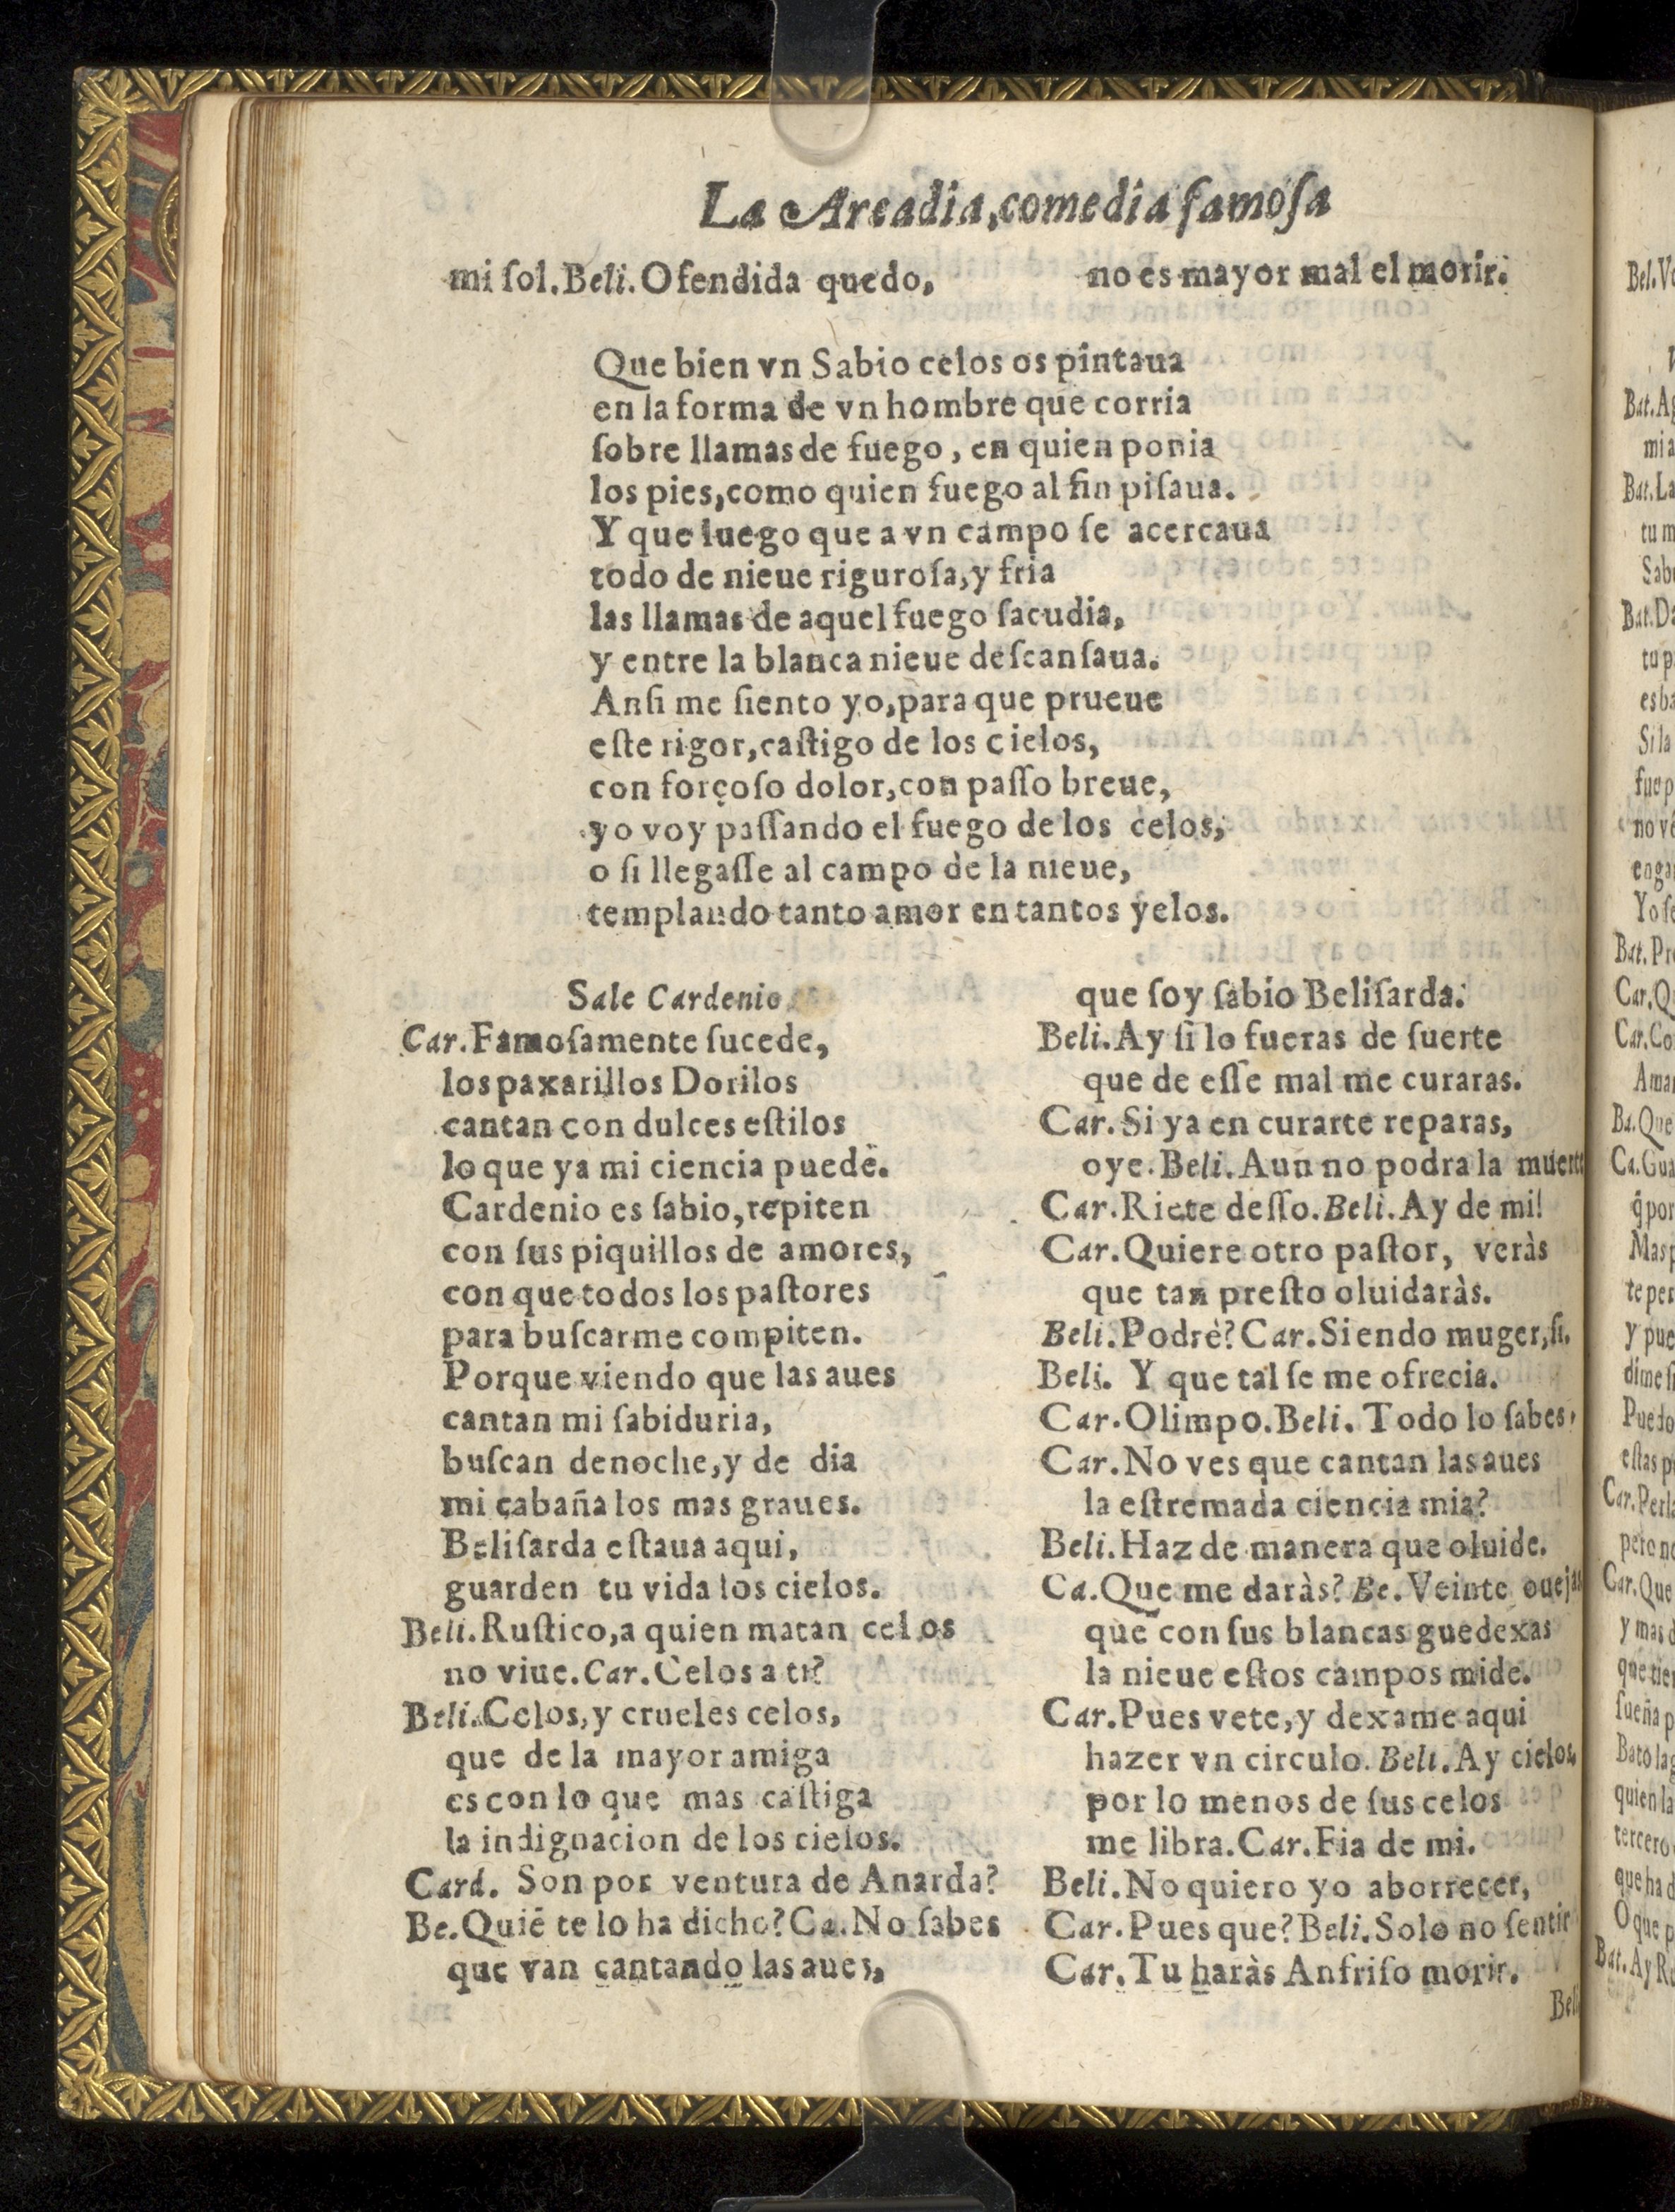 La Arcadia, comedia famoſa
mi ſol. Beli. Ofendida quedo,
no es mayor mal el morir.
Que bien vn Sabio celos os pintaua
en la forma de vn hombre que corria
ſobre llamas de fuego, en quien ponia
los pies, como quien fuego al fin piſaua.
Y que luego que a vn campo ſe acercaua
todo de nieue riguroſa, y fria
las llamas de aquel fuego ſacudia,
y entre la blanca nieue deſcanſaua.
Anſi me ſiento yo, para que prueue
eſte rigor, caſtigo de los cielos,
con forçoſo dolor, con paſſo breue,
yo voy paſſando el fuego de los celos,
o ſi llegaſſe al campo de la nieue,
templando tanto amor en tantos yelos.
Sale Cardenio
Car. Famoſamente ſucede,
los paxarillos Dorilos
cantan con dulces eſtilos
lo que ya mi ciencia puede.
Cardenio es ſabio, repiten
con ſus piquillos de amores,
con que todos los paſtores
para buſcarme compiten.
Porque viendo que las aues
cantan mi ſabiduria,
buſcan de noche, y de dia
mi cabaña los mas graues.
Beliſarda eſtaua aqui,
guarden tu vida los cielos.
Beli. Ruſtico, a quien matan celos
no viue. Car. Celos a ti?
Beli. Celos, y crueles celos,
que de la mayor amiga
es con lo que mas caſtiga
la indignacion de los cielos.
Card. Son por ventura de Anarda?
Be. Quiē te lo ha dicho? Ca. No ſabes
que van cantando las aues,
que ſoy ſabio Beliſarda.
Beli. Ay ſi lo fueras de ſuerte
que de eſſe mal me curaras.
Car. Si ya en curarte reparas,
oye. Beli. Aun no podra la muerte
Car. Riete deſſo. Beli. Ay de mi!
Car. Quiere otro paſtor, veràs
que tan preſto oluidaràs.
Beli. Podrè? Car. Siendo muger, ſi.
Beli. Y que tal ſe me ofrecia.
Car. Olimpo. Beli. Todo lo ſabes,
Car. No ves que cantan las aues
la eſtremada ciencia mia?
Beli. Haz de manera que oluide.
Ca. Que me daràs? Be. Veinte ouejas
que con ſus blancas guedexas
la nieue eſtos campos mide.
Car. Pues vete, y dexame aqui
hazer vn circulo. Beli. Ay cielos,
por lo menos de ſus celos
me libra. Car. Fia de mi.
Beli. No quiero yo aborrecer,
Car. Pues que? Beli. Solo no ſentir
Car. Tu haràs Anfriſo morir.
Beli